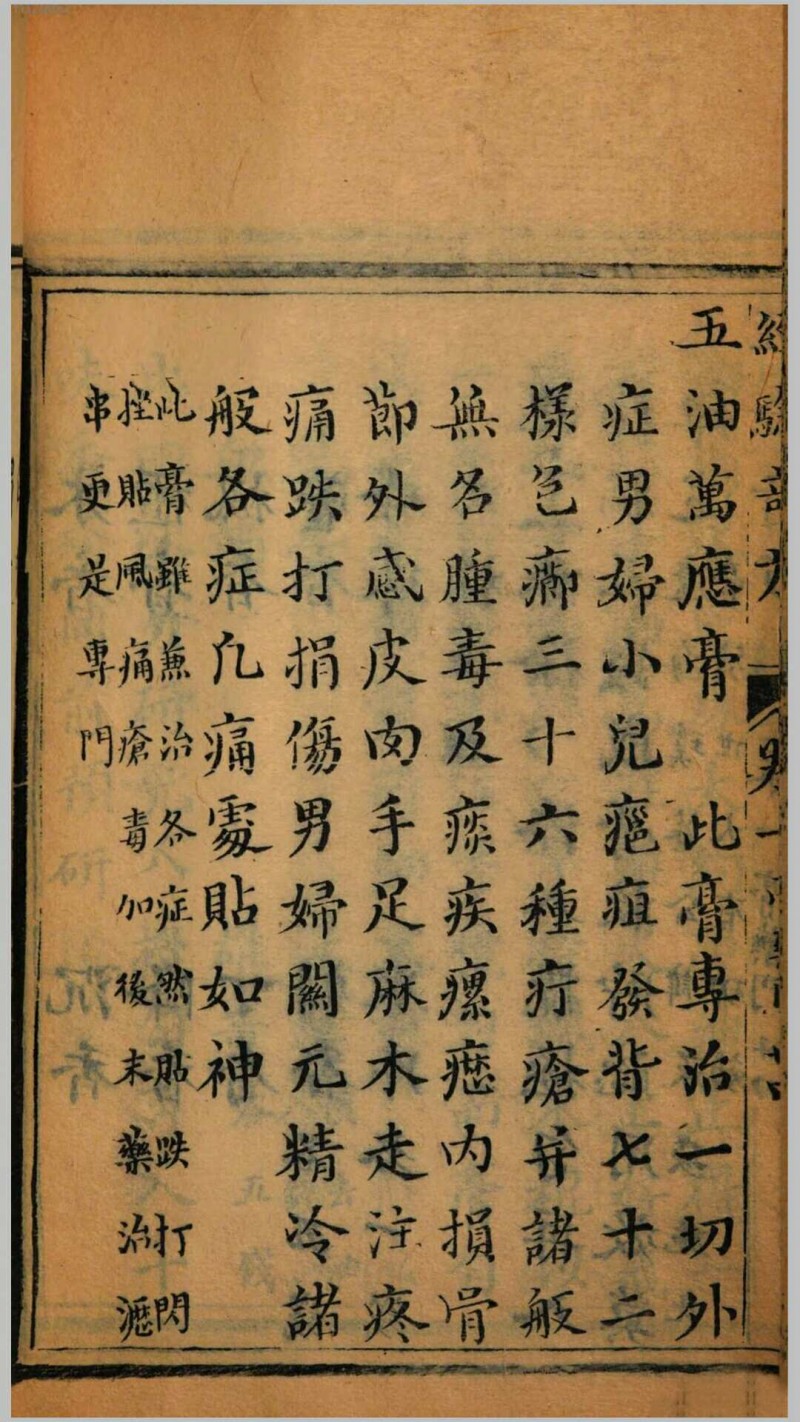 五油萬應膏 此膏專治一切外
症男婦小兒癰疽發背七十二
樣色癤三十六種疔瘡并諸般
無名腫毒及痰疾瘰癧內損骨
節外感皮肉手足麻木走注疼
痛跌打損傷男婦關元精冷諸
般各症凡痛處貼如神
此膏雖兼治各症然貼跌打閃
挫貼風痛瘡毒加後末藥治瀝
串更是專門